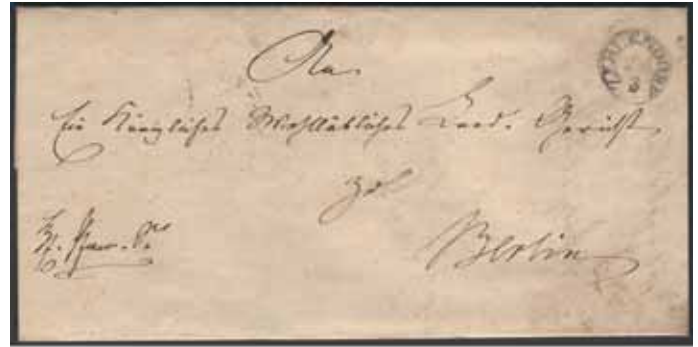 An
Ein Königliches Wohllöbliches Land-Gericht
zu
Berlin
ZEHLENDORF